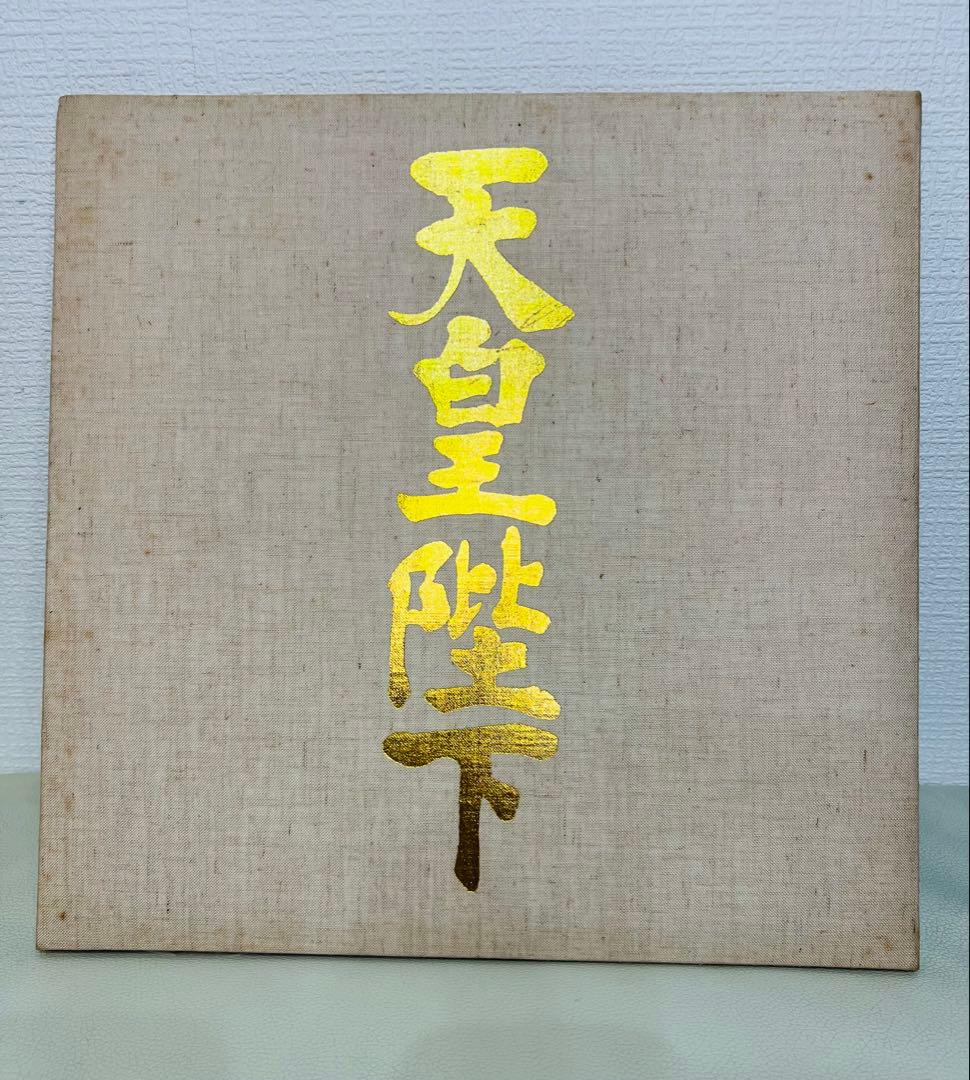 天皇陛下